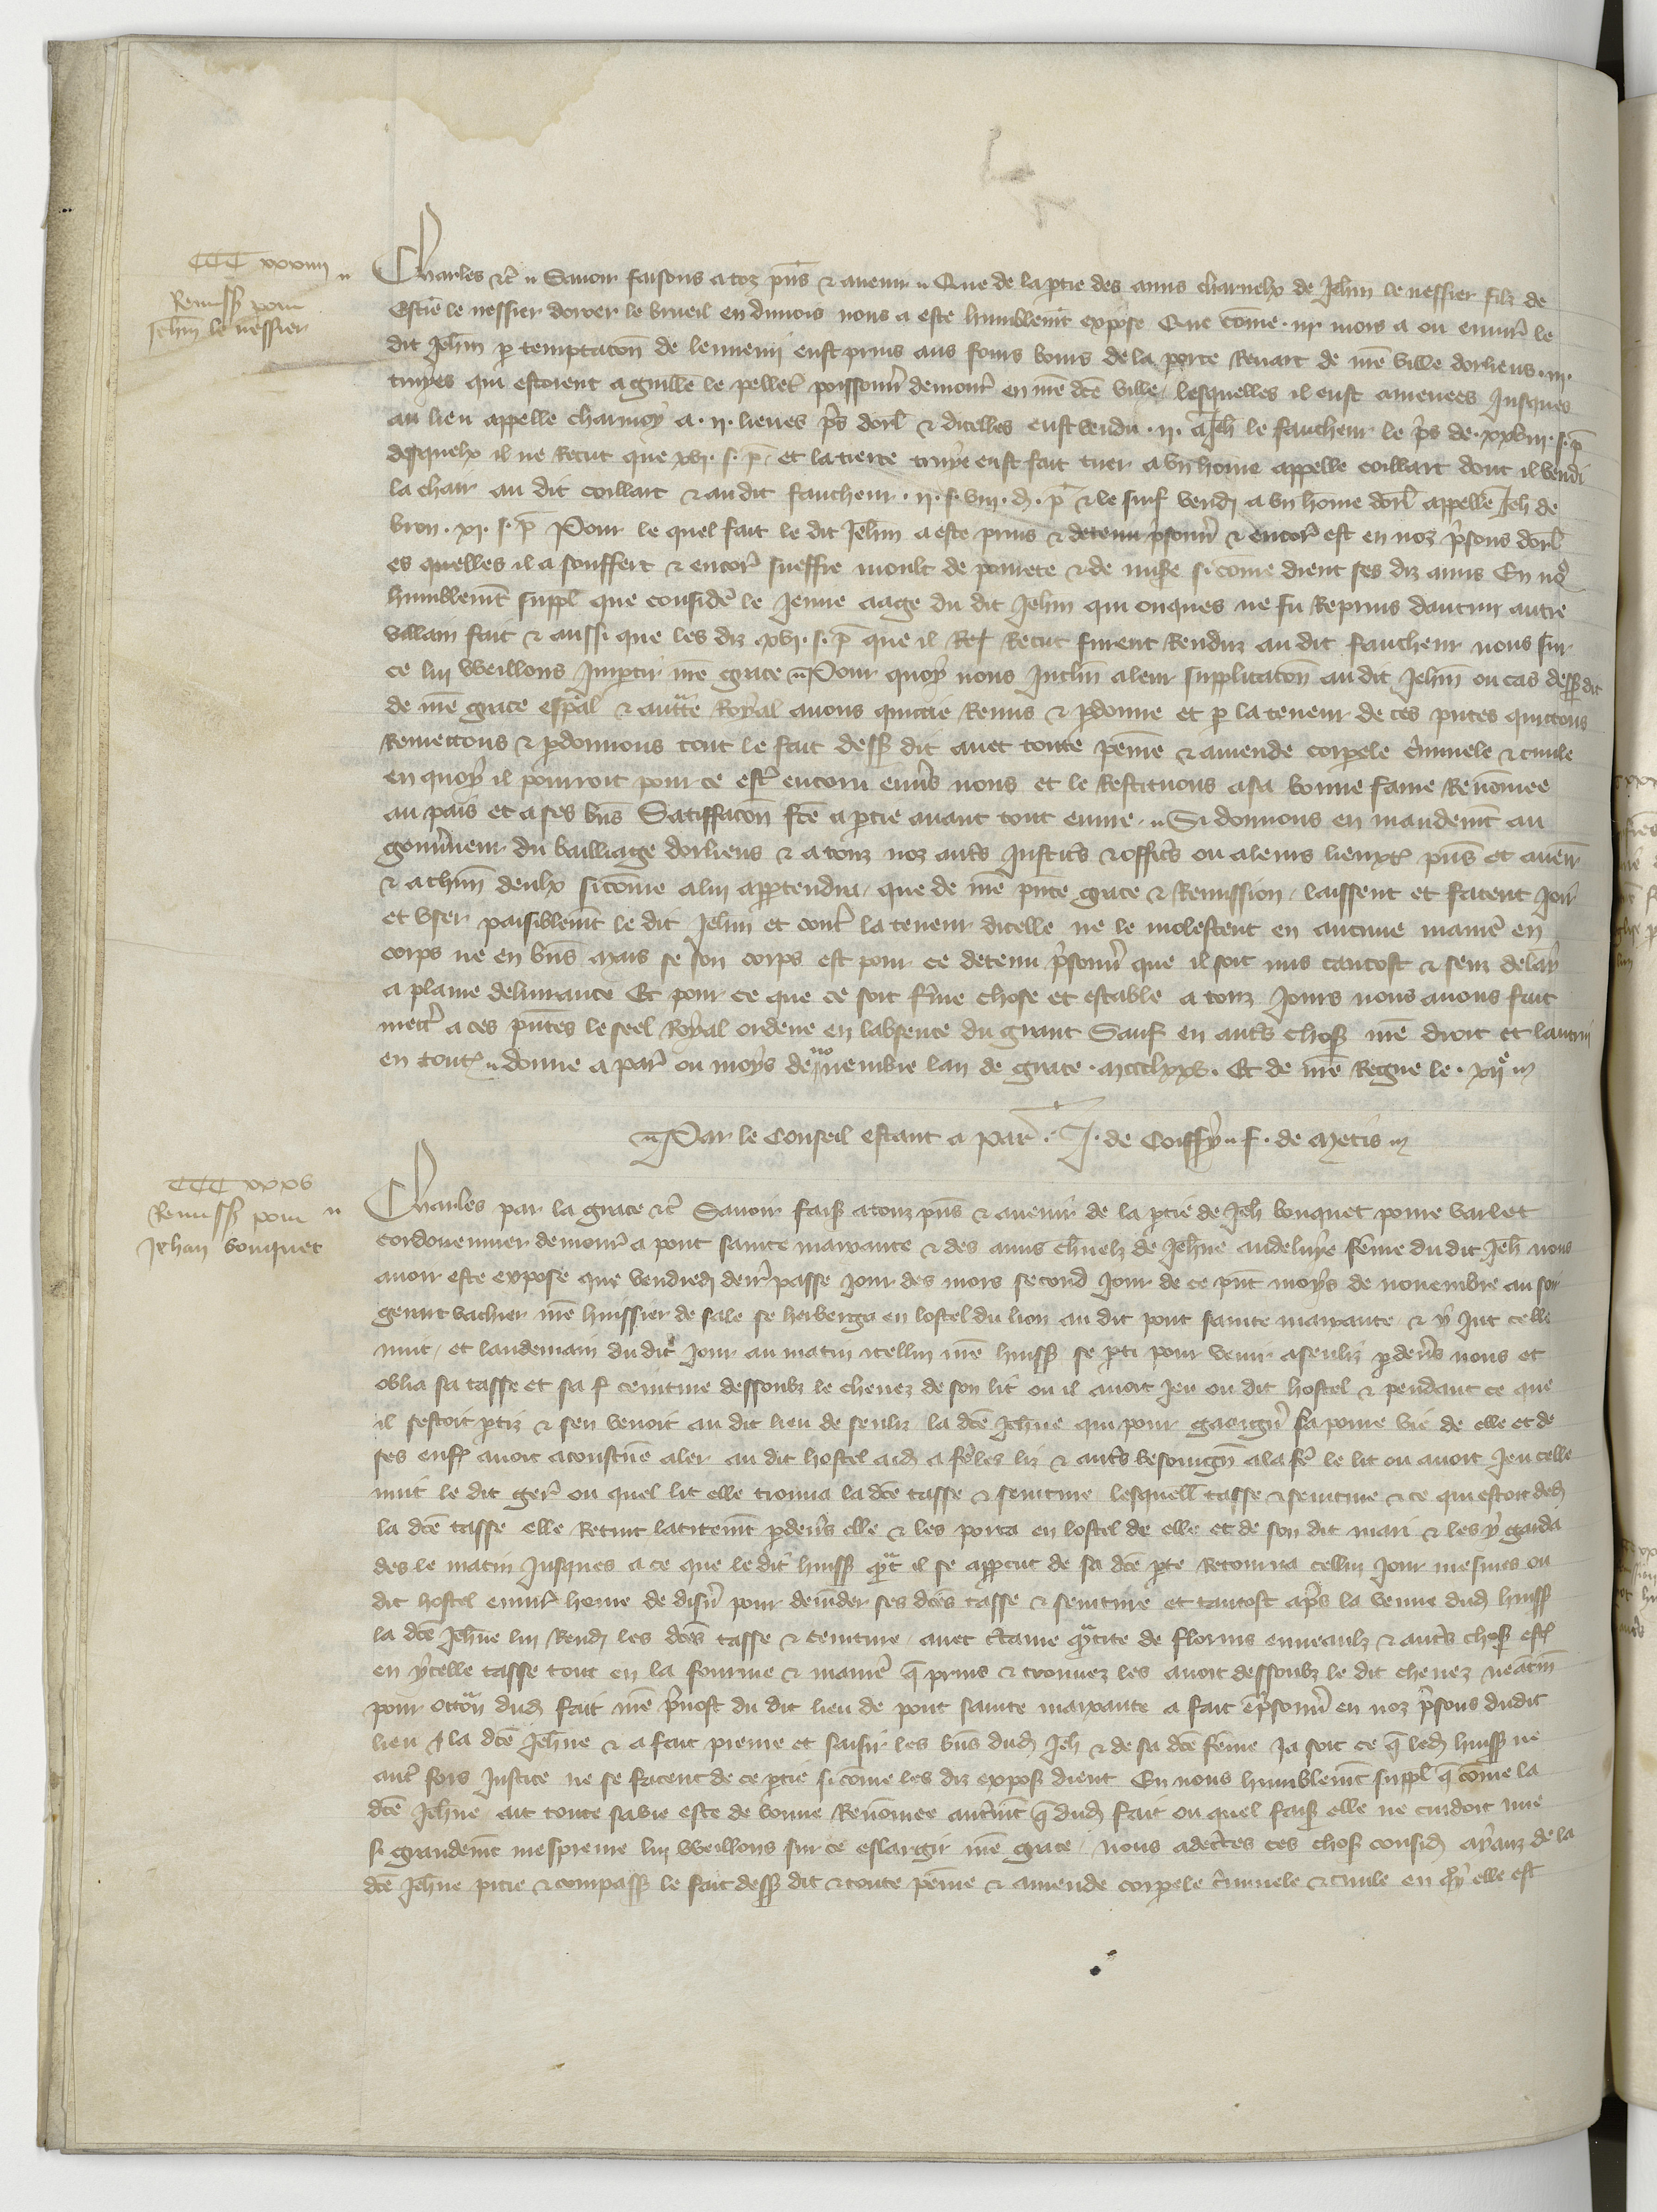 CCC xxxiiii
Remissẜ pour
Jehan le nessier
Charles etc̃ Savoir faisons a toz pñs et avenir Que de la ꝑtie des amis charnelx de Jehan le nessier filz de
Estiẽ le nessier dozoer le brueil en dunois nous a este humblemẽt exposé Que cõme .iii. mois a ou environ le
dit Jehan ꝑ temptacõn de lennemi eust prins aus fours bours de la porte Renart de nr̃e ville dorliens .iii.
truyes qui estoient a guille le pelleť poissonñ demorãt en nr̃e dcẽ ville, lesquelles il eust amenees Jusques
au lieu appelle charmoy a .ii. lieues pˢ dorl̃ et dicelles eust vendu .ii. a Jeh̃ le faucheur le pˢ de .xxviii. s. p̃
desquelx il ne Recut que xvi. s. p̃. et la tierce truye eust fait tuer a un home appelle coillart dont il vendi
la chair au dit coillart et au dit faucheur .ii. s. viii. d. p̃ et le suif vendi a un home dorl̃ appelle Jeh̃ de
bron .xi. s. p̃ Pour le quel fait le dit Jehan a este prins et detenu pˢonñ et encorˀ est en noz pˢons dorl̃
es quelles il a souffert et encorˀ sueffre moult de povrete et de misẽ si come dient ses diz amis En nr̃e
humblemẽt suppl̃ que considẽ le jeune aage du dit Jehan qui onques ne fu Reprins dautre autre
villain fait et aussi que les diz xvi. s. p̃ que il Re Recut furent Renduz au dit faucheur nous sur
ce lui vueillons Impartir nr̃e grace Pour quoy nous Inclin̄ a leur supplicacõn au dit Jehan ou cas dessẜ dit
de nr̃e grace esp̃al et auctẽ Royal avons quictie Remis et ꝑdonne et ꝑ la teneur de ces pñtes quictons
Remectons et ꝑdonnons tout le fait dessẜ dit avec toute peine et amende corporele criminele et civile
en quoy il pourroit pour ce estˀ encoru envˢ nous et le Restituons a sa bonne fame Renõmee
au pais et a ses biñs Satiffacõn fcẽ a ꝑtie avant tout euvre Si donnons en mandemẽt au
gouvˀneur du bailliage dorliens et a touz noz autˢ Justicˢ et officˢ ou a leurs lieuxtˢ pñs et aveñ
et a chũn deulx si come a lui appartendra, que de nr̃e pñte grace et Remission, laissent et facent Joir
et user paisiblemẽt le dit Jehan et contˀ la teneur dicelle ne le molestent en aucune maniẽ en
corps ne en biñs Mais se son corps est pour ce detenu pˢonñ que il soit mis tantost et senz delay
a plaine delivrance Et pour ce que ce soit ferme chose et estable a touz jours nous avons fait
mectˀ a ces pñtes le seel Royal ordene en labsence du grant Sauf en autˢ chosẜ nr̃e droit et lautrui
en toutˢ donne a Parˀ ou moys de novembre lan de grace .mccclxxv. Et de nr̃e Regne le .xiiᵉ
Par le Conseil estant a Parˀ. J. de Coiffy f. de Metis
CCC xxxv
Remissẜ pour
Jehan bouquet
Charles par la grace etc̃ Savoir faisẜ a touz pñs et avenir de la ꝑtie de Jeh̃ bouquet povre varlet
cordouennier demorãt a pont sainte maxance et des amis chñelz de Jehñe andeluye fẽme du dit Jeh̃ nous
avoir este expose que vendredi derˀ passe jour des mors second jour de ce pñt moys de novembre au soir
gerart vachier nr̃e huissier de sale se heberga en lostel du lion au dit pont sainte maxance et y Jut celle
nuit, et landemain du dit jour au matin icellui nr̃e huissẜ se ꝑti pour venir a senliz ꝑdevˢ nous et
oblia sa tasse et sa f ceinture dessoubz le chevez de son lit ou il avoit Jeu ou dit hostel et pendant ce que
il sestoit ꝑtiz et sen venoit au dit lieu de senliz la dcẽ Jehñe qui pour gaaigñ sa povre vie de elle et de
ses enfˢ avoit acoustumẽ aler au dit hostel aid̃ a fẽ les liz et autˢ besoingñ ala fẽ le lit ou avoit jeu celle
nuit le dit gerˀ ou quel lit elle trouva la dcẽ tasse et seinture lesquell̃ tasse et seinture et ce qui estoit ded̃
la dcẽ tasse elle Retint latitemẽt ꝑdevˢ elle et les porta en lostel de elle et de son dit mari et les y garda
des le matin Jusques a ce que le dit huissẜ qˢnt il se apparcut de sa dcẽ ꝑte Retourna cellui jour meismes ou
dit hostel environ heure de disnˀ pour demãder ses dcẽs tasse et seinture et tantost apˢ la venue dud̃ huissẜ
la dcẽ Jehñe lui Rendi les dcẽs tasse et ceinture, avec cˢtaine quãtite de florins enneaulx et autˢ chosẜ estˢ
en ycelle tasse tout en la fourme et maniẽ q̃ prins et trouvez les avoit dessoubz le dit chevez neãtm̃
pour occõn dud̃ fait nr̃e pˢvost du dit lieu de pont sainte maxance a fait ẽpˢonñ en noz pˢons dudit
lieu la dcẽ Jehñe et a fait prenre et saisir les biñs dud̃ Jeh̃ et de sa dcẽ fẽme Ja soit ce q̃ led̃ huissẜ ne
autˀ fors Justice ne se facent de ce ꝑtie si cõme les diz exposẜ dient En nous humblemẽt suppl̃ q̃ cõme la
dcẽ Jehñe ait toute sa vie este de bonne Renõmee autˀmẽt q̃ dud̃ fait ou quel faisẜ elle ne cuidoit mie
si grandemẽt mesprenre lui vueillons sur ce eslargir nr̃e grace, nous adecˢtes ces chosẜ consid̃ ayanz de la
dcẽ Jehñe pitie et compassẜ le fait dessẜ dit et toute peine et amende corporele criminele et civile en qˢy elle est